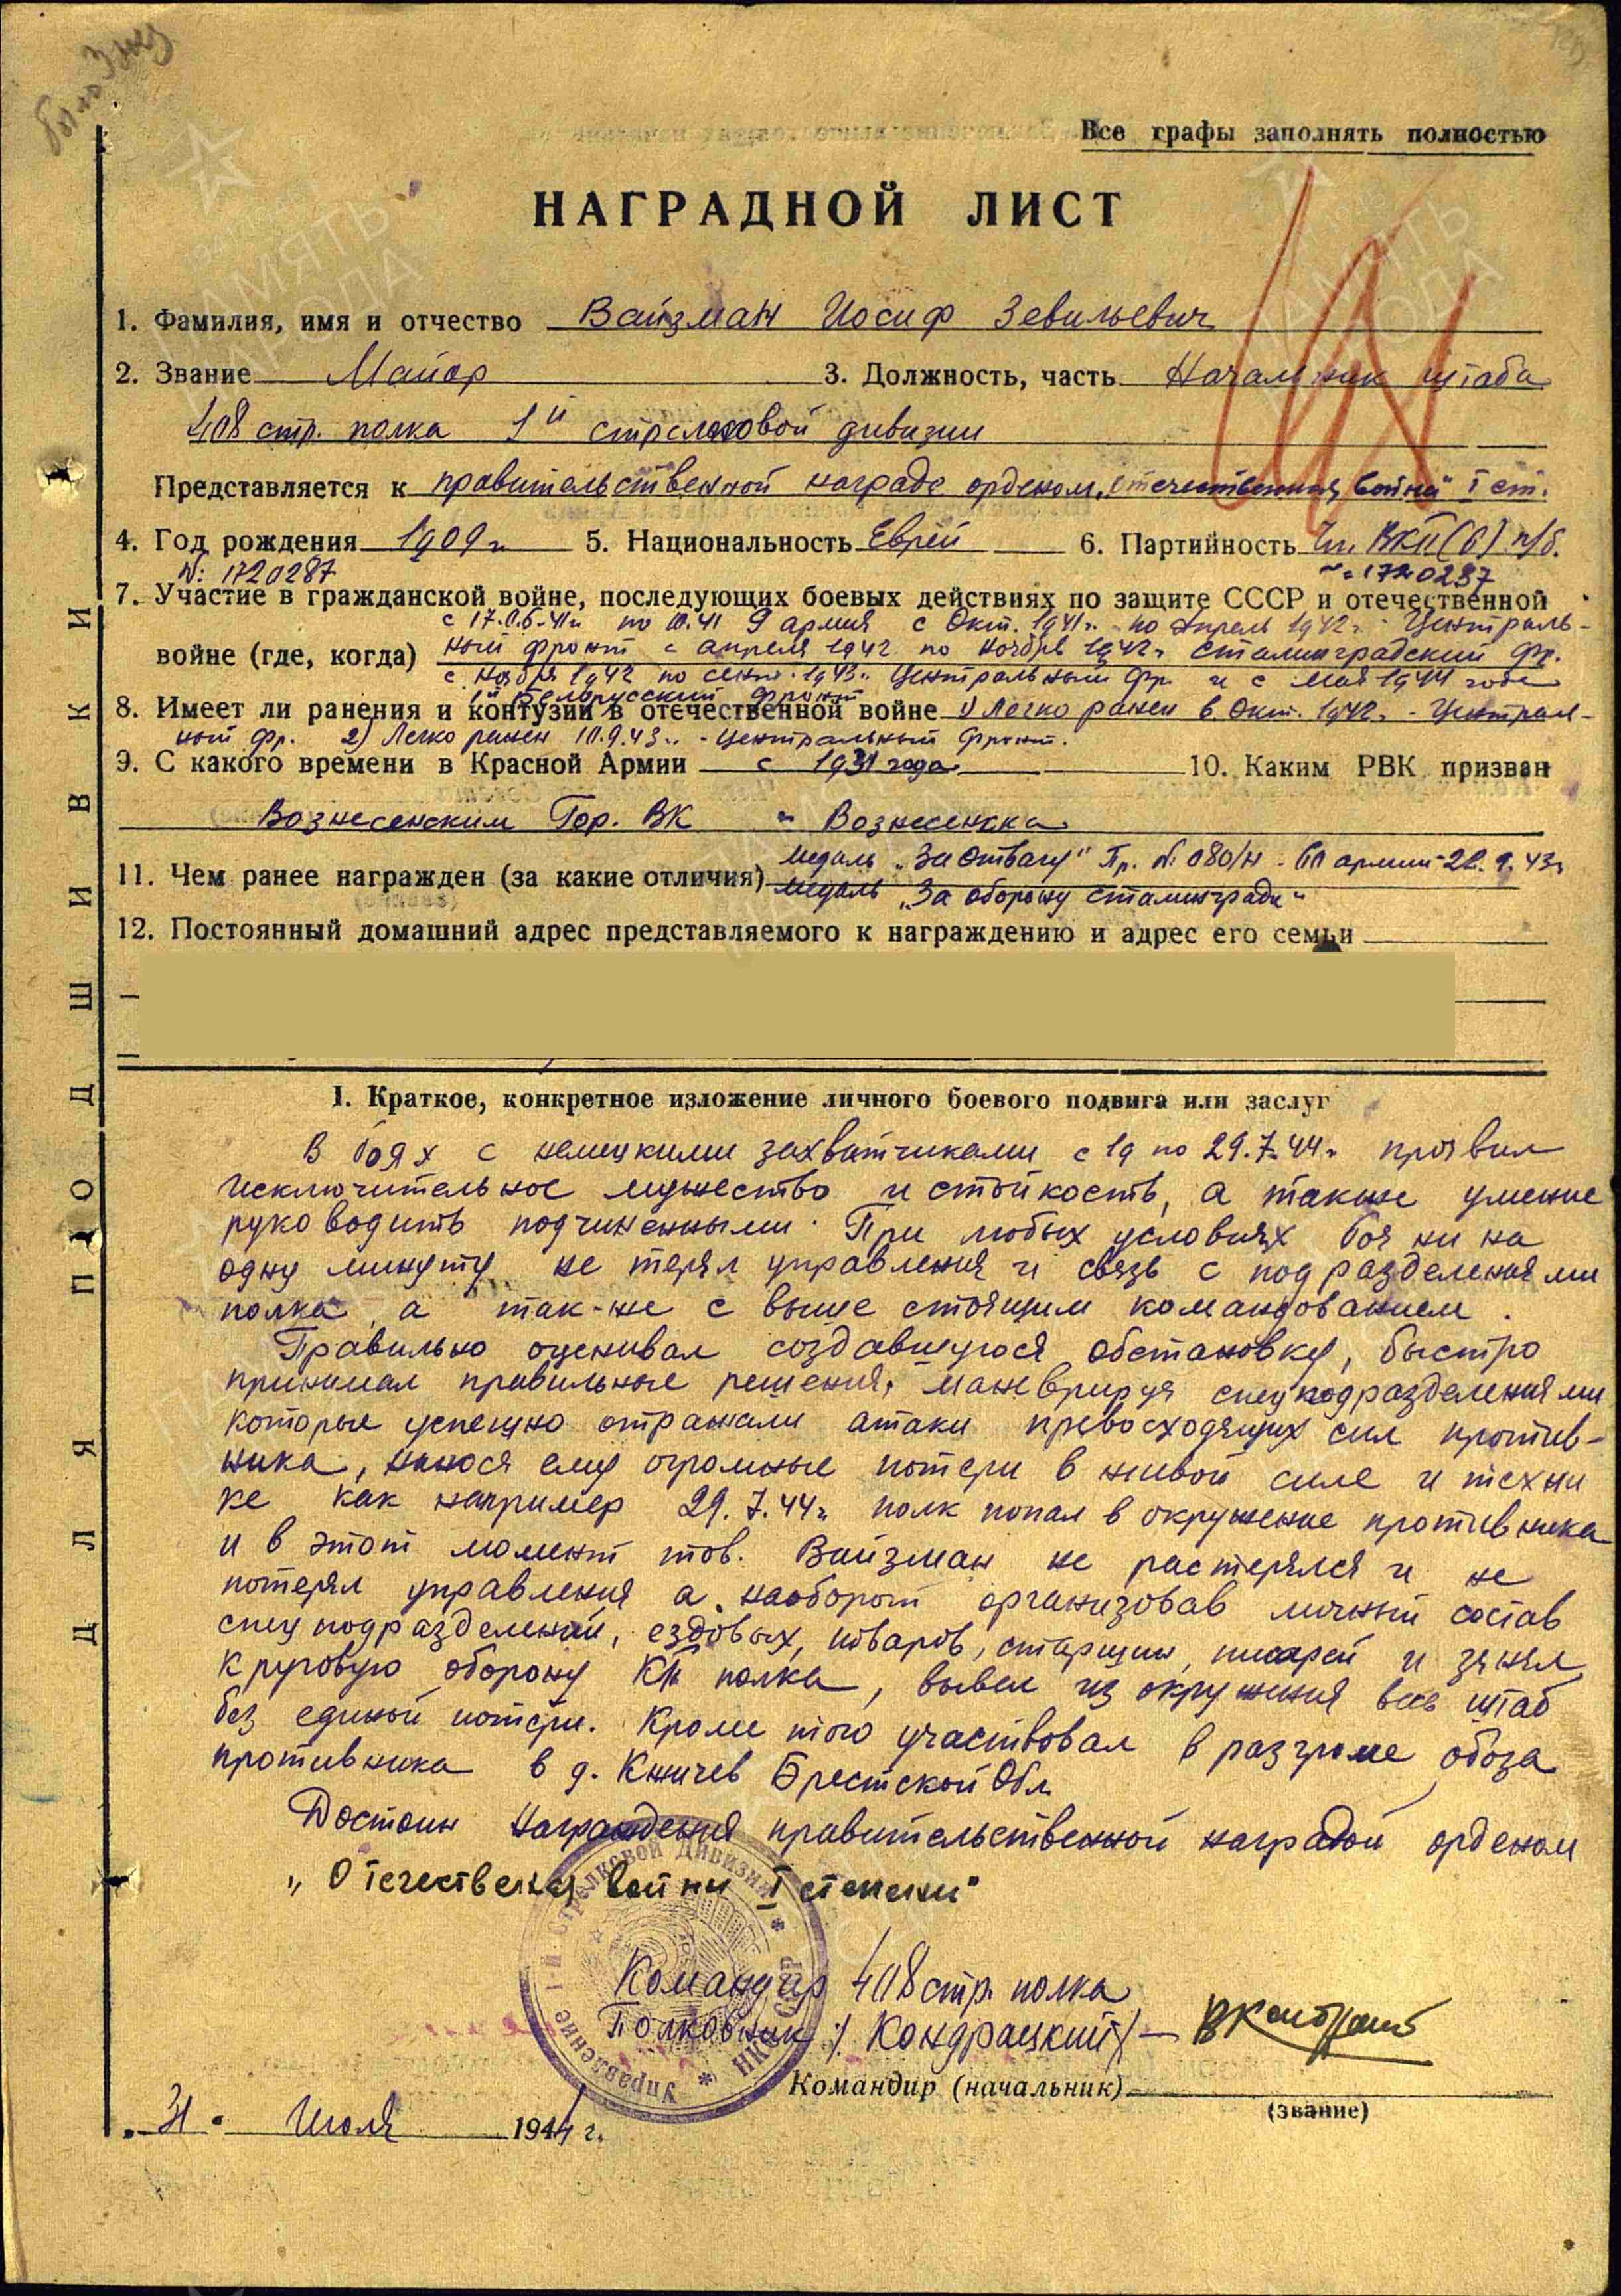 было 3 экз
Все графы заполнять полностью
НАГРАДНОЙ ЛИСТ
1. Фамилия, имя и отчество Вайзман Иосиф Зевильевич
2. Звание Майор 3. Должность, часть Начальник штаба
408 стр. полка 1й стрелковой дивизии
Представляется к правительственной награде орденом „Отечественная война" I ст.
4. Год рождения 1909 г. 5. Национальность Еврей 6. Партийность Чл. ВКП(б) п/б.
№: 1720287 № 1720287
7. Участие в гражданской войне, последующих боевых действиях по защите СССР и отечественной
с 17.06.41 г. по 10.41 9 армия с Окт. 1941 г. по Апрель 1942 г. Централь-
войне (где, когда) ный фронт с апреля 1942 по ноябрь 1942 г. Сталинградский фр.
с Ноября 1942 по сент. 1943 г. Центральный фр. и с мая 1944 года
1й Белорусский фронт
8. Имеет ли ранения и контузии в отечественной войне 1) Легко ранен в Окт. 1942 г. - Централь-
ный фр. 2) Легко ранен 10.9.43 г. - Центральный фронт.
9. С какого времени в Красной Армии с 1931 года 10. Каким РВК призван
Вознесенским Гор. ВК г. Вознесенска
11. Чем ранее награжден (за какие отличия) медаль „За Отвагу" Пр. № 080/н - 60 армии 22.9.43 г.
медаль „За оборону Сталинграда"
12. Постоянный домашний адрес представляемого к награждению и адрес его семьи
I. Краткое, конкретное изложение личного боевого подвига или заслуг
В боях с немецкими захватчиками с 19 по 29.7.44 г. проявил
исключительное мужество и стойкость, а также умение
руководить подчиненными. При любых условиях боя ни на
одну минуту не терял управления и связь с подразделениями
полка, а так-же с выше стоящим командованием.
Правильно оценивал создавшуюся обстановку, быстро
принимал правильные решения, маневрируя спецподразделениями
которые успешно отражали атаки превосходящих сил против-
ника, нанося ему огромные потери в живой силе и техни
ке как например 29.7.44 г. полк попал в окружение противника
и в этот момент тов. Вайзман не растерялся и не
потерял управления а наоборот организовав личный состав
спецподразделений, ездовых, поваров, старшин, писарей и занял
круговую оборону КП полка, вывел из окружения весь штаб
без единой потери. Кроме того участвовал в разгроме обоза
противника в д. Кничев Брестской Обл.
Достоин награждения правительственной наградой орденом
„Отечественная войны I степени"
Командир 408 стр. полка
Полковник /Кондрацкий/
Командир (начальник)
(звание)
„31" Июля 1944 г.
Управление 1-й Стрелковой Дивизии * НКО СССР *
ДЛЯ ПОДШИВКИ
ПАМЯТЬ НАРОДА